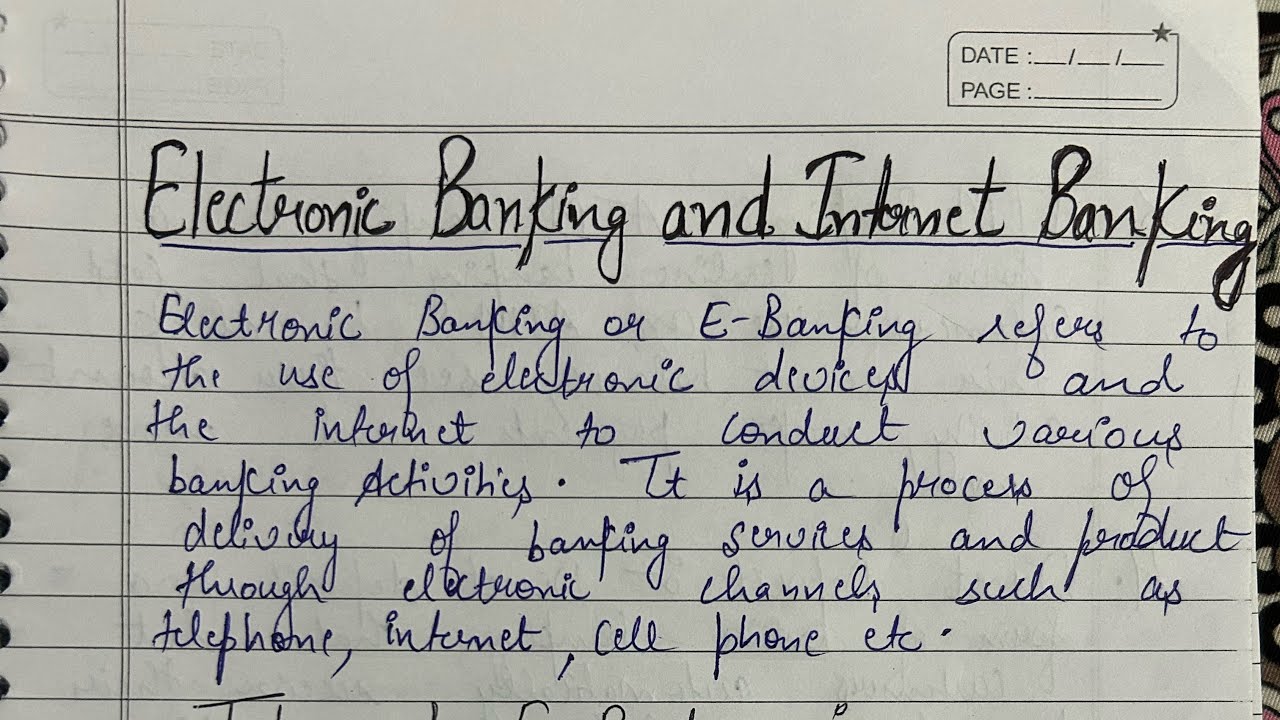 DATE :__/__/__
PAGE :________
Electronic Banking and Internet Banking
Electronic Banking or E-Banking refers to
the use of electronic devices and
the internet to conduct various
banking Activities. It is a process of
delivery of banking services and product
through electronic channels such as
telephone, internet, cell phone etc.